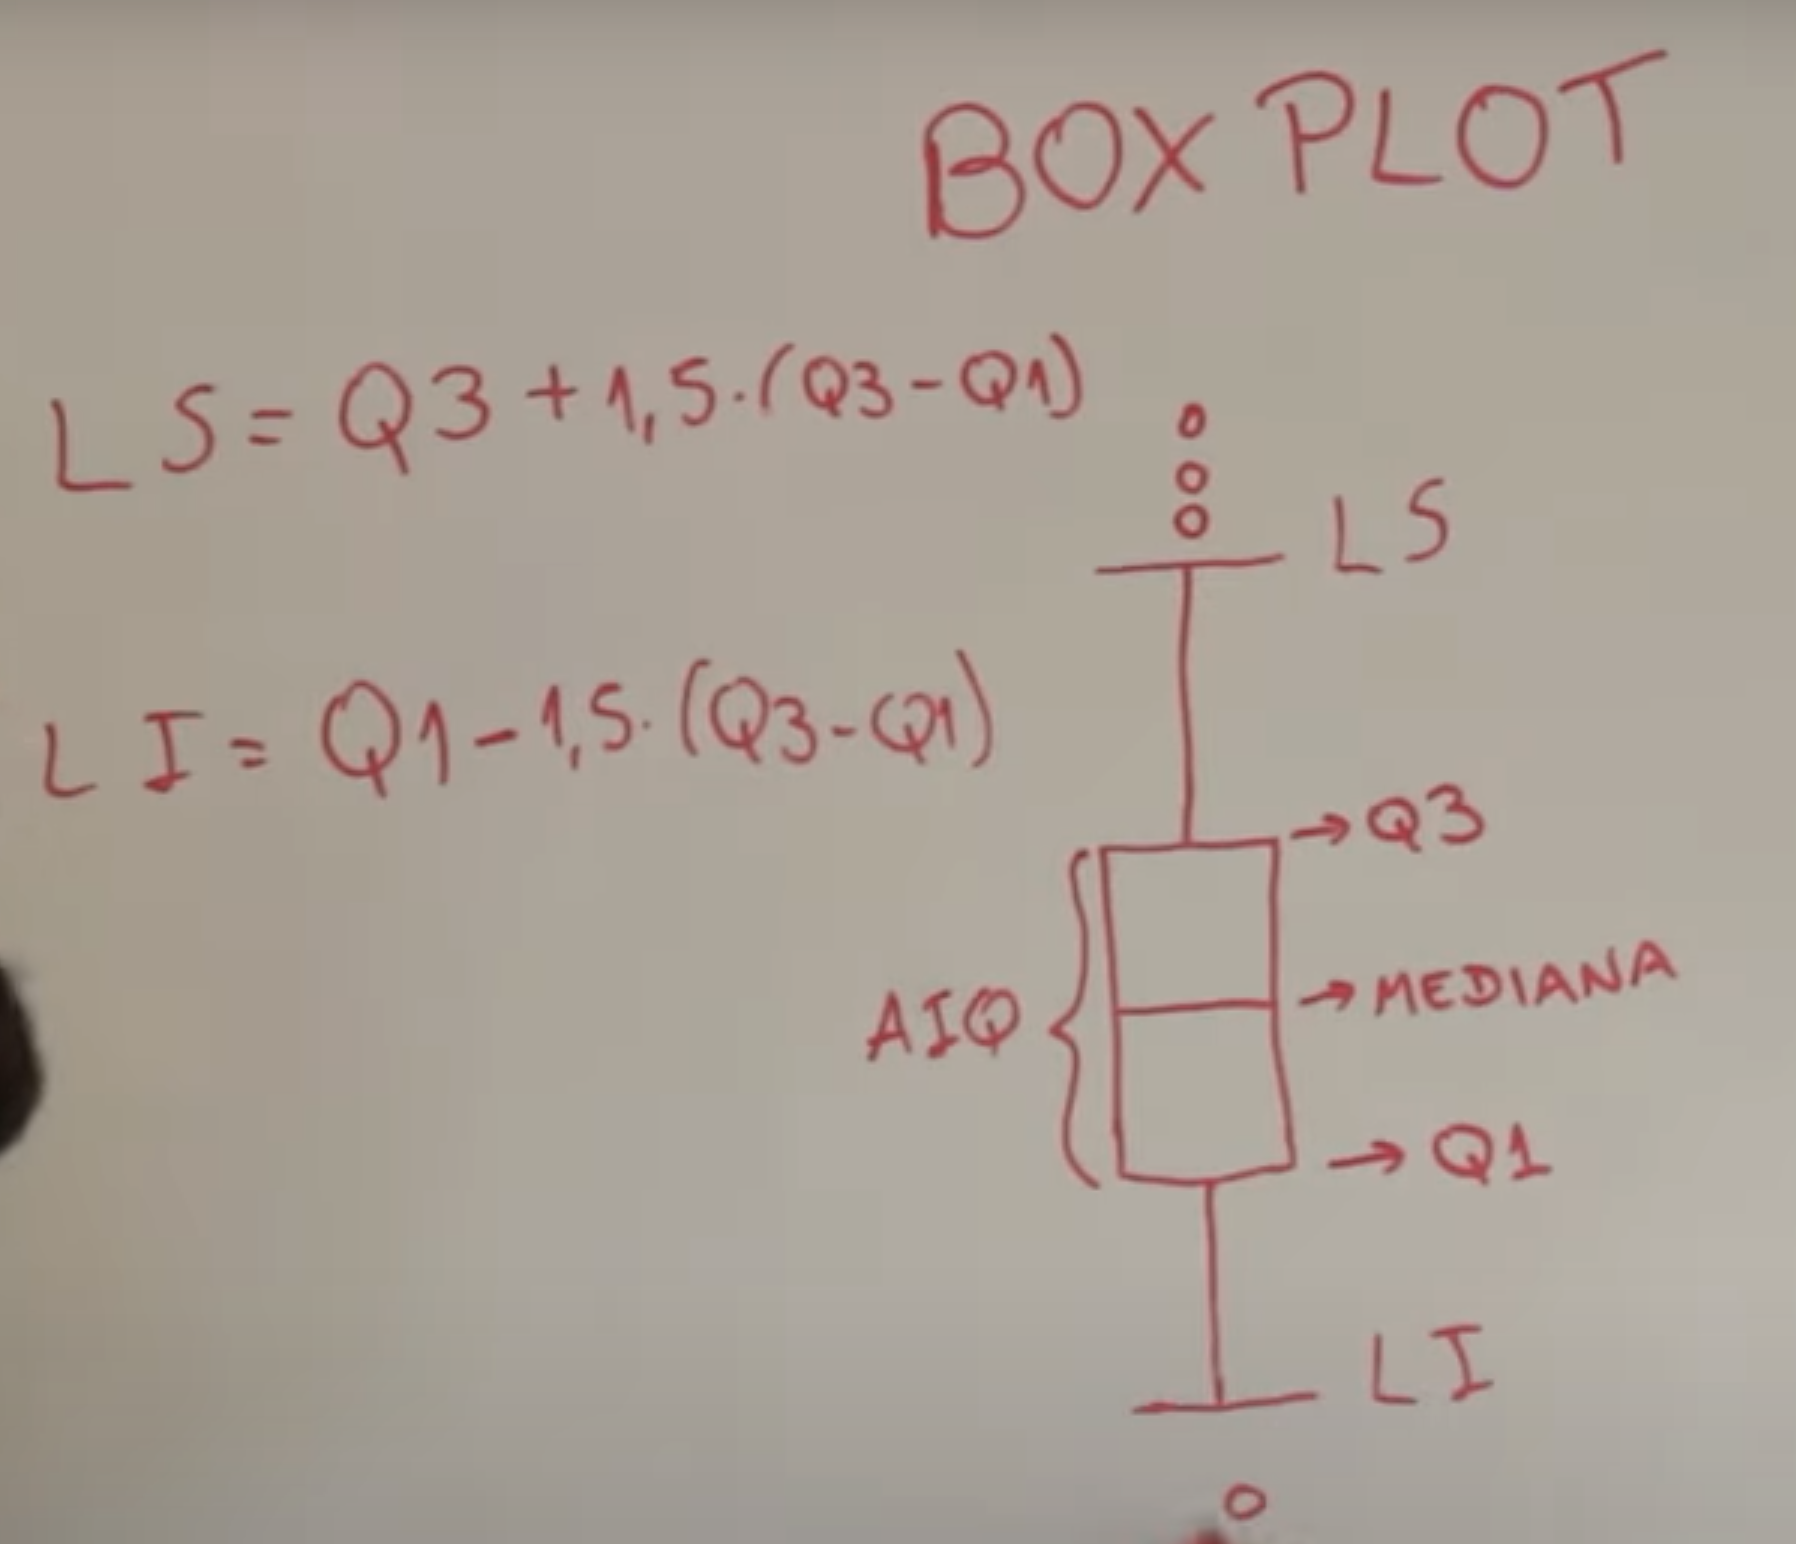 BOX PLOT
LS = Q3 + 1,5.(Q3-Q1)
LS
LI = Q1 - 1,5.(Q3-Q1)
→ Q3
AIQ
→ MEDIANA
→ Q1
LI